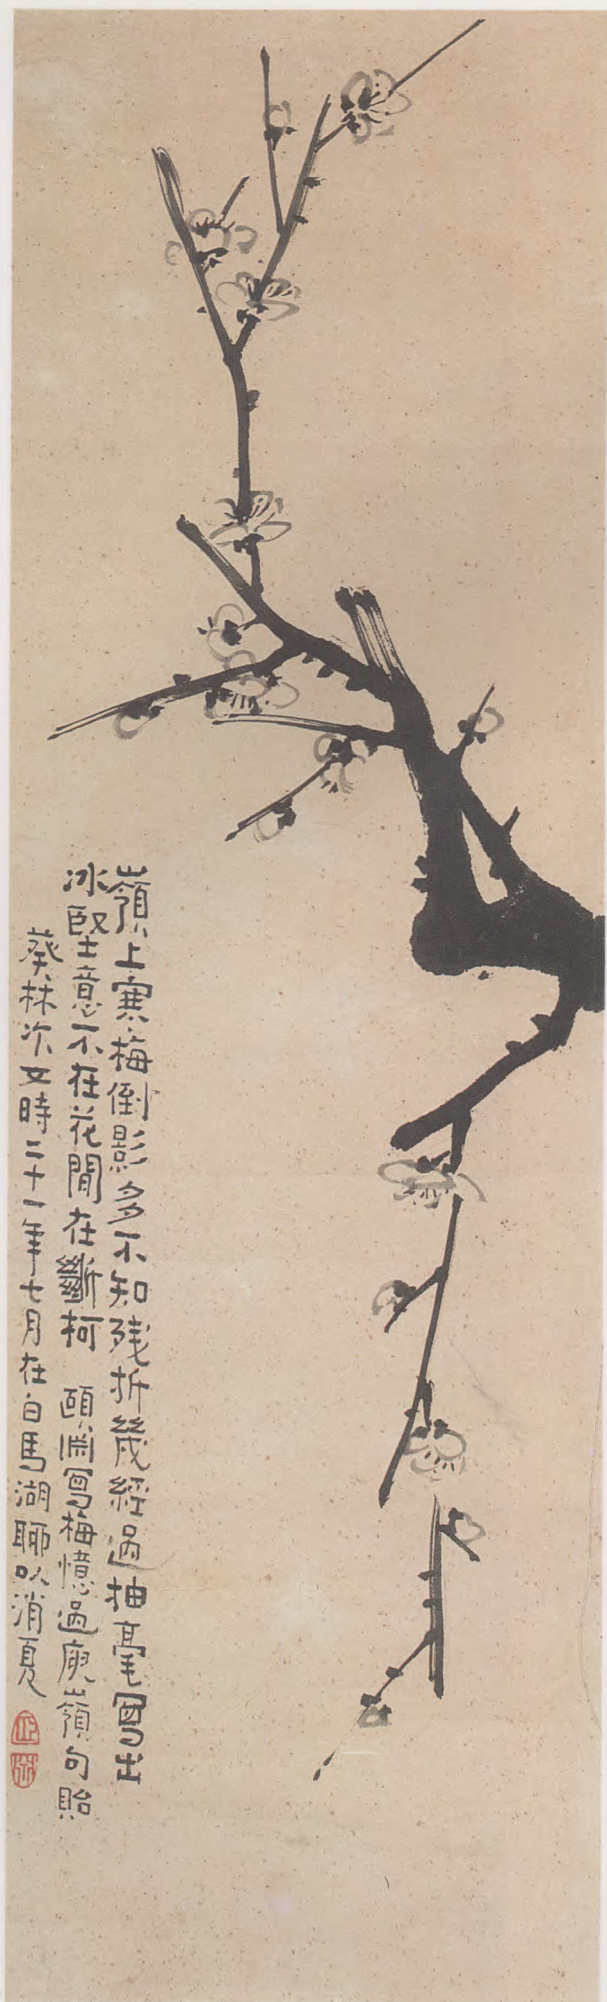 嶺上寒梅倒影多不知残折幾經過抽毫寫出
冰堅意不在花間在斷柯 頤淵寫梅憶過庾嶺句貽
葵林時二十一年七月在白馬湖聊以消夏